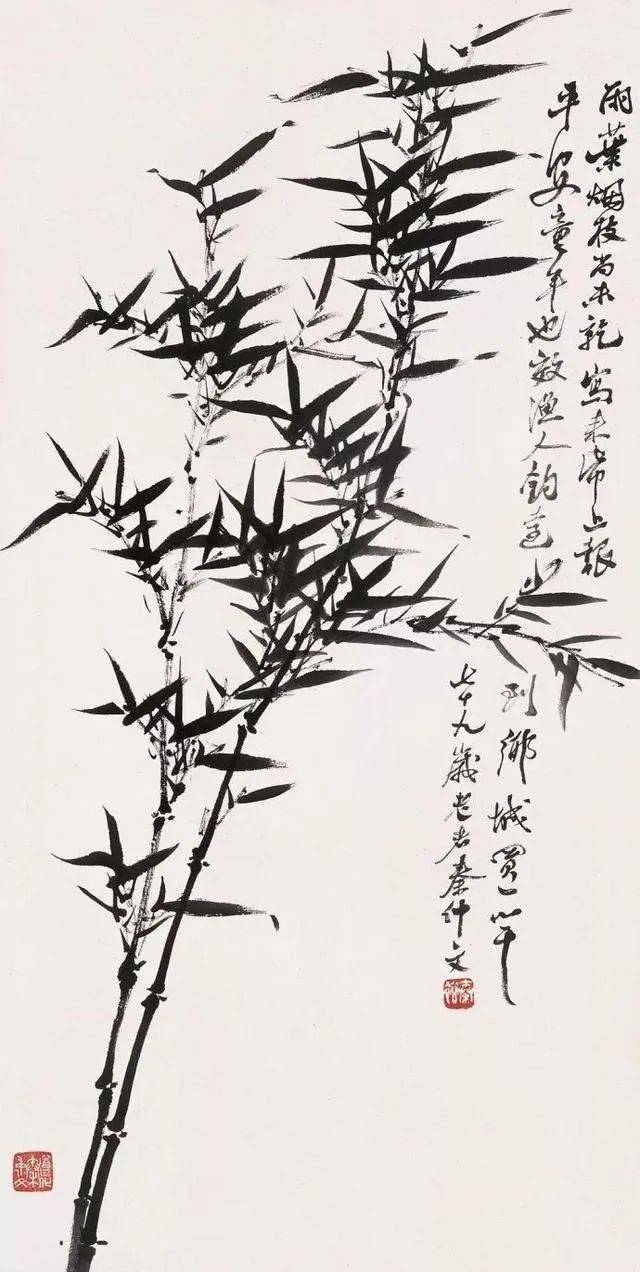 雨葉烟枝尚未乾寫來帋上報
平安童年也效漁人釣走
到鄉城買一竿
七十九歲老者秦仲文